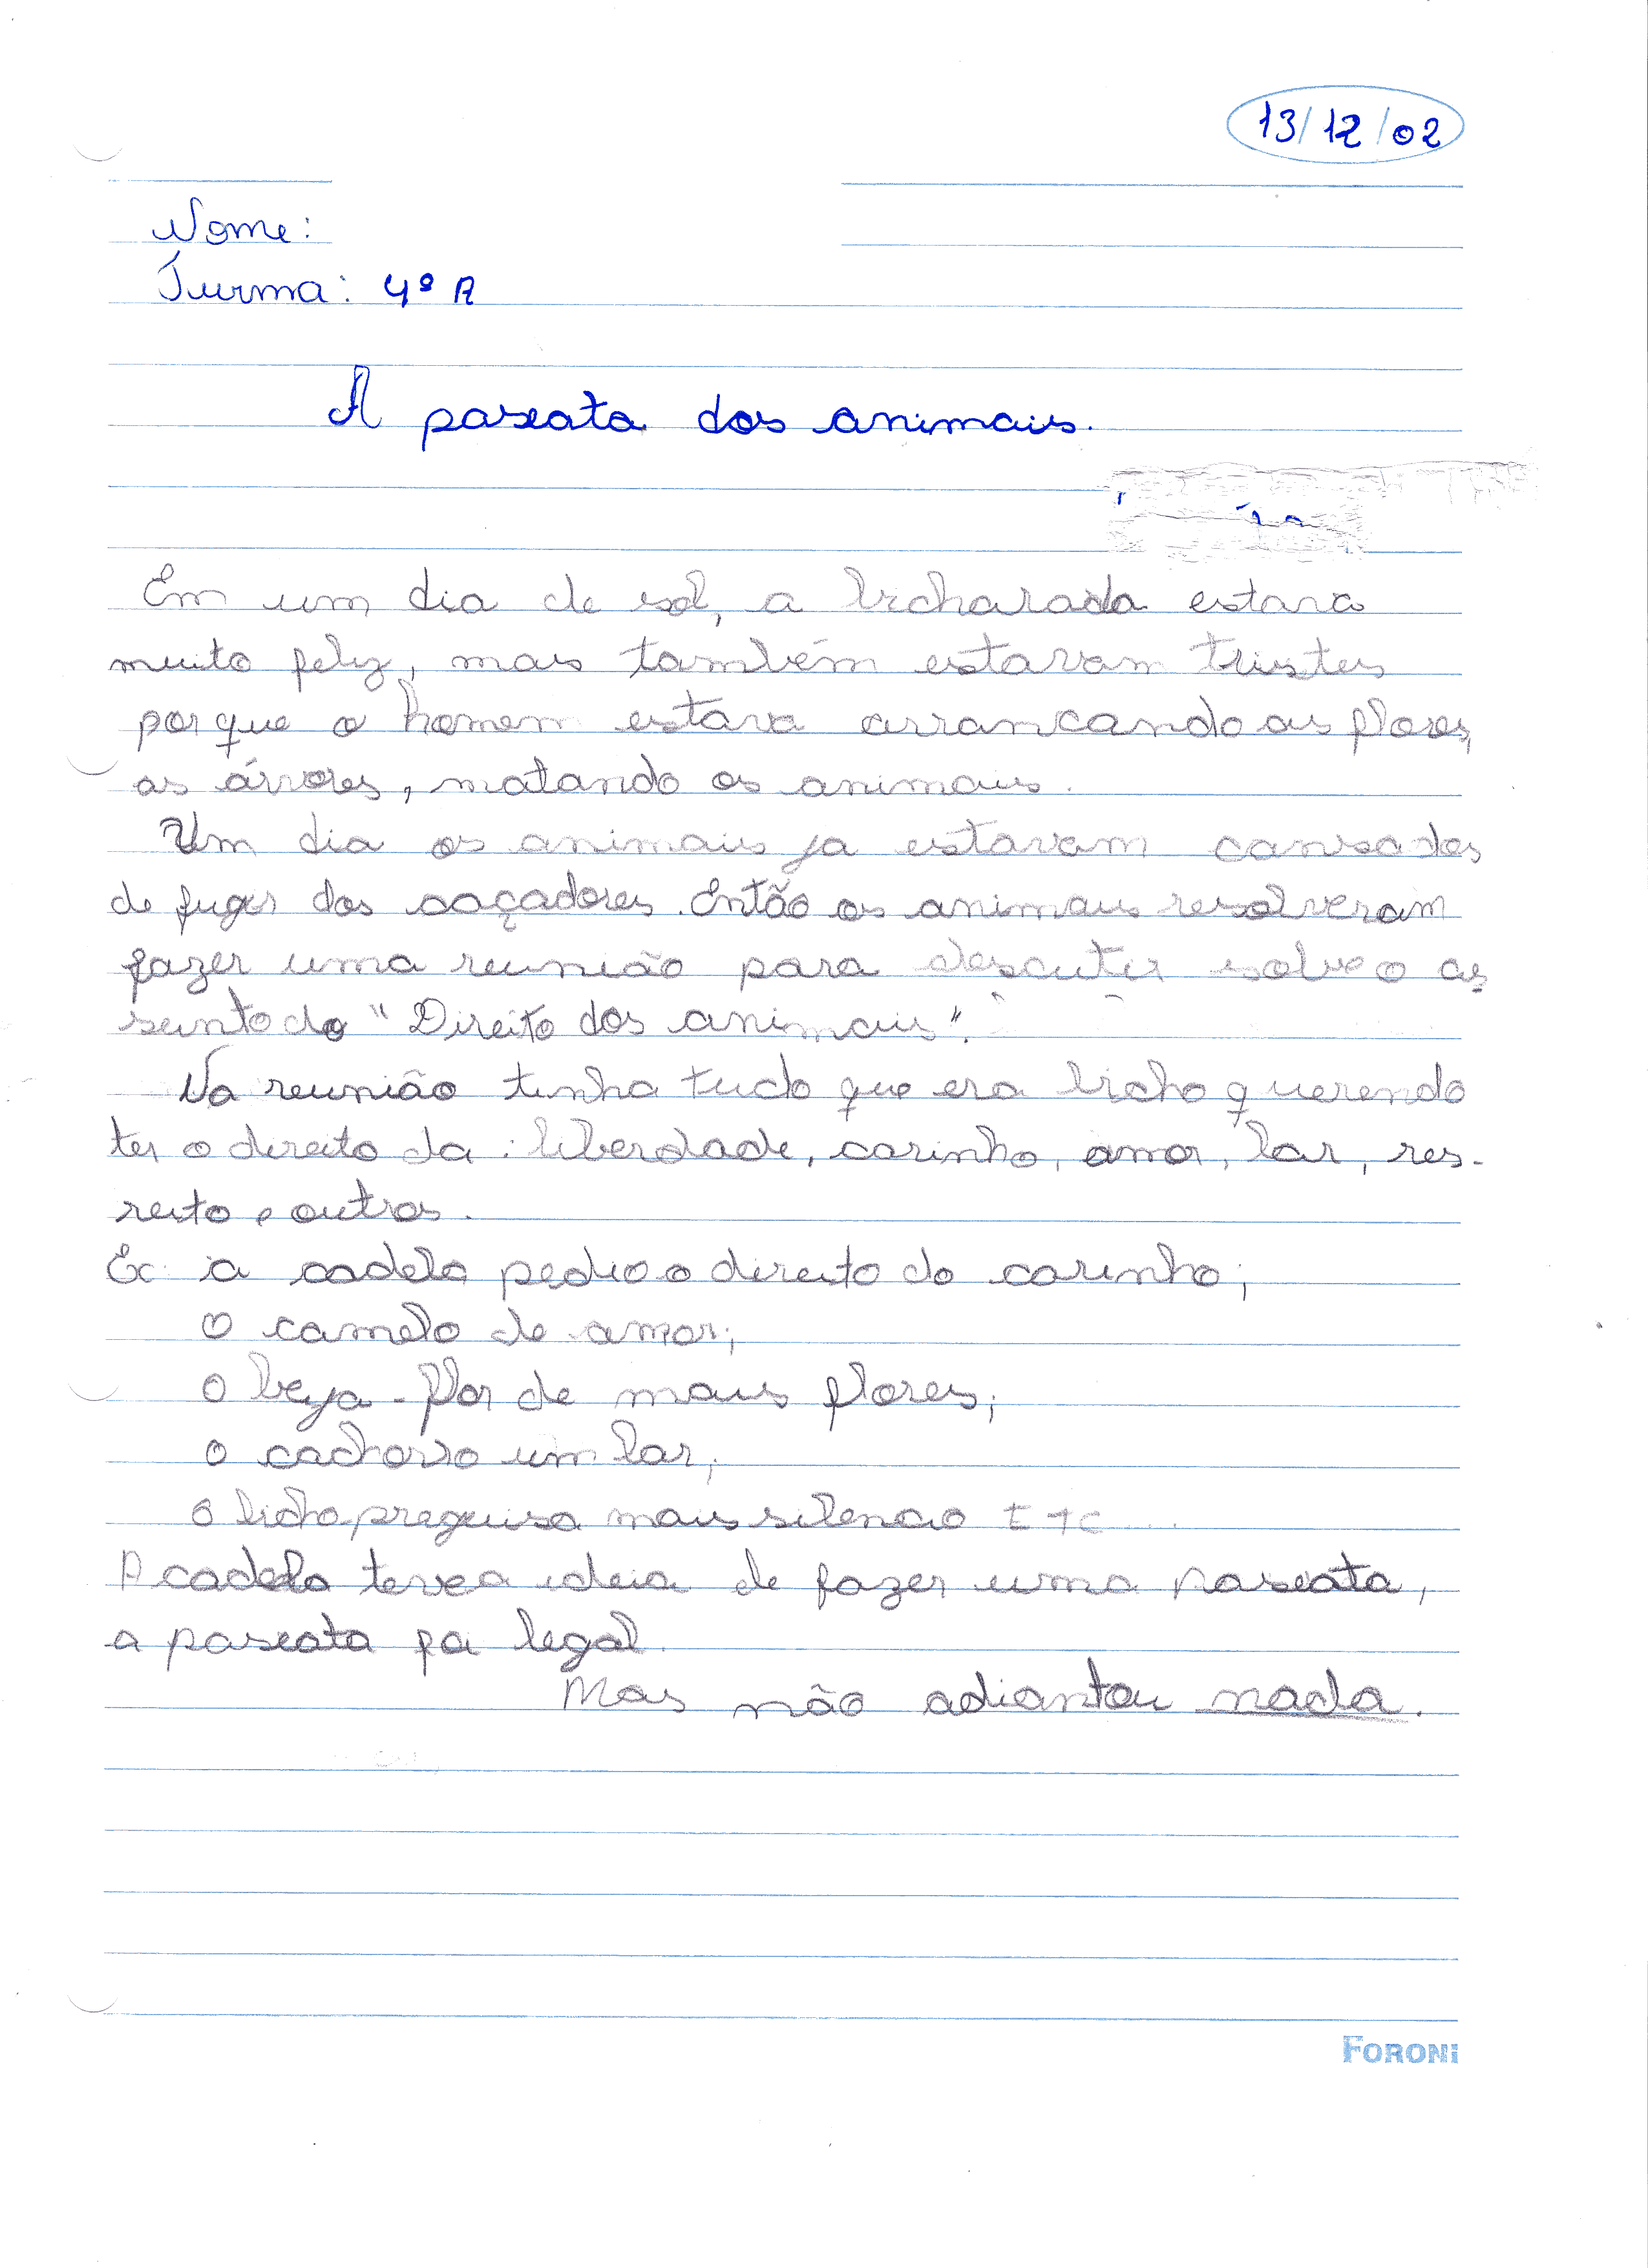 13/12/02
Nome:
Turma: 4º A
A paseata dos animais.
Em um dia de sol, a bicharada estava
muito feliz, mais também estavam tristes
porque o homem estava arrancando as flores,
as árvores, matando os animais.
Um dia os animais ja estavam cansados
de fugir dos caçadores. Então os animais resolveram
fazer uma reunião para descutir sobre o as
sunto do "Direito dos animais".
Na reunião tinha tudo que era bicho querendo
ter o direito da: liberdade, carinho, amor, lar, res-
peito e outros.
Ex: a cadela pedio o direito do carinho;
o camelo de amor;
o beija-flor de mais flores;
o cachorro um lar;
o bicho-preguisa mais silencio Etc...
A cadela teve a ideia de fazer uma paseata,
a paseata foi legal.
Mas não adiantou nada.
FORONI